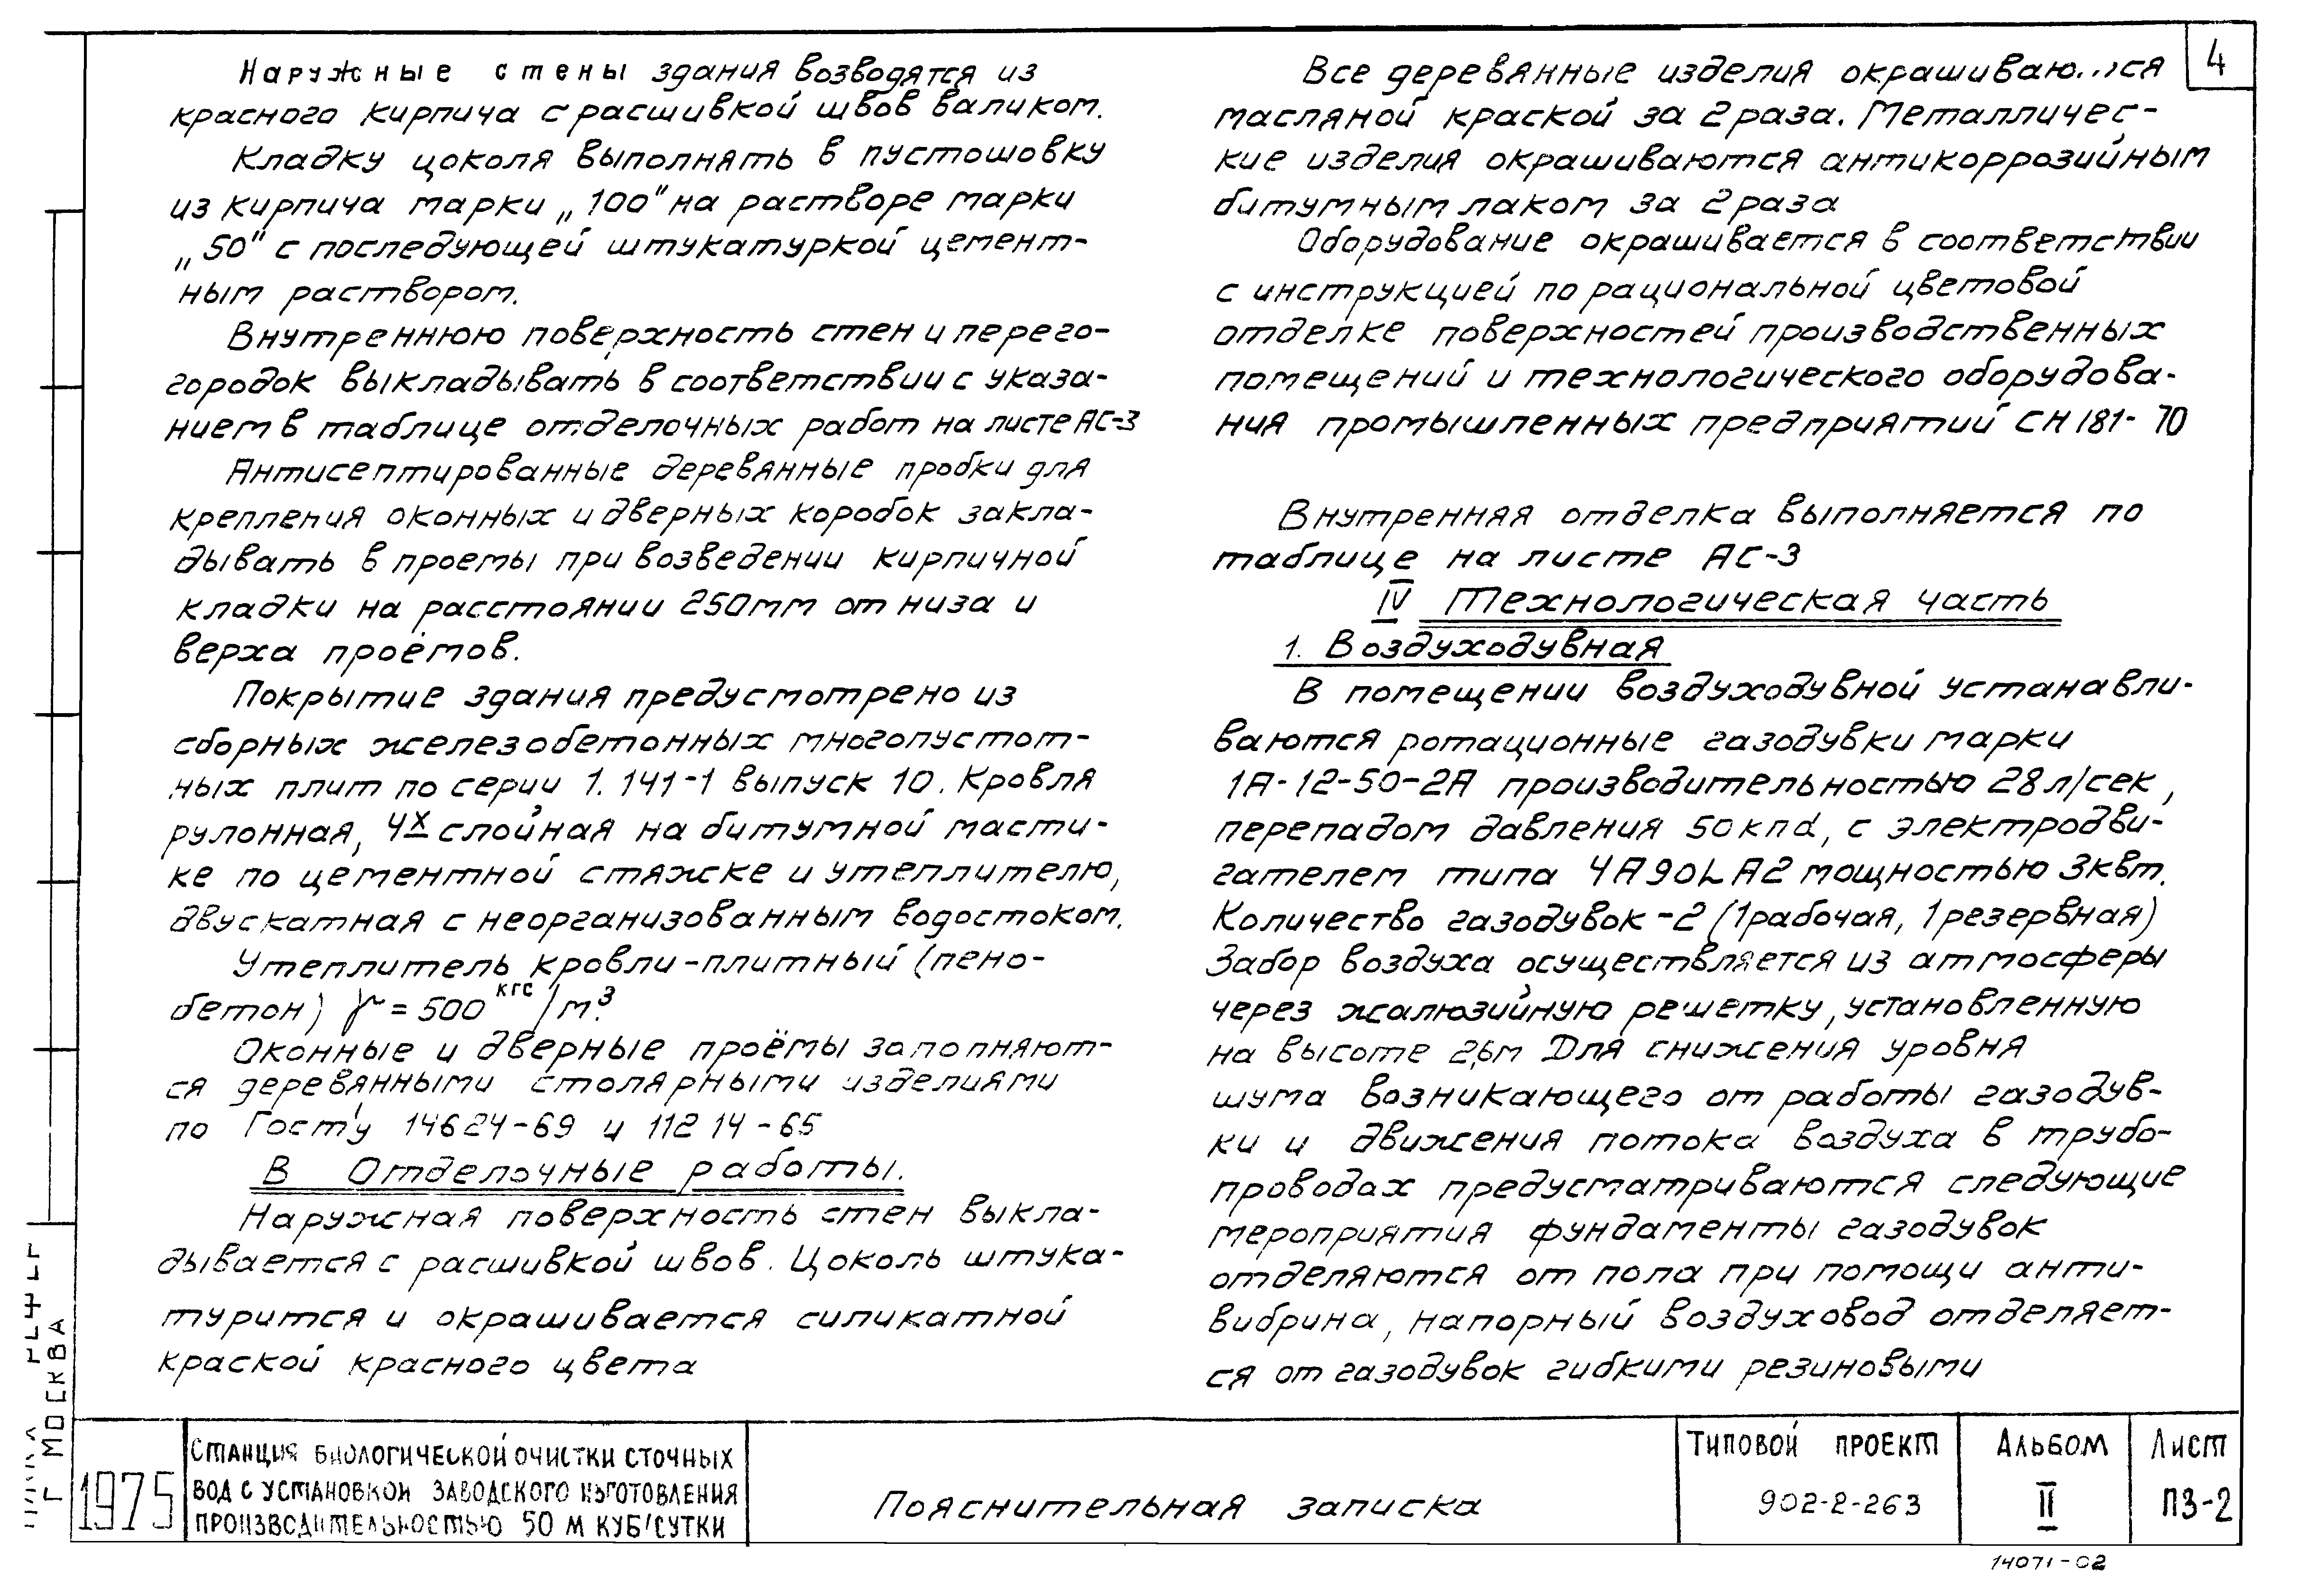 Наружные стены здания возводятся из
красного кирпича с расшивкой швов валиком.
Кладку цоколя выполнять в пустошовку
из кирпича марки „100" на растворе марки
„50" с последующей штукатуркой цемент-
ным раствором.
Внутреннюю поверхность стен и перего-
городок выкладывать в соответствии с указа-
нием в таблице отделочных работ на листе АС-3
Антисептированные деревянные пробки для
крепления оконных и дверных коробок закла-
дывать в проемы при возведении кирпичной
кладки на расстоянии 250мм от низа и
верха проёмов.
Покрытие здания предусмотрено из
сборных железобетонных многопустот-
ных плит по серии 1.141-1 выпуск 10. Кровля
рулонная, 4х слойная на битумной масти-
ке по цементной стяжке и утеплителю,
двускатная с неорганизованным водостоком.
Утеплитель кровли-плитный (пено-
бетон) γ = 500 кгс/м³.
Оконные и дверные проёмы заполняют-
ся деревянными столярными изделиями
по Гост'у 14624-69 и 11214-65
В Отделочные работы.
Наружная поверхность стен выкла-
дывается с расшивкой швов. Цоколь штука-
турится и окрашивается силикатной
краской красного цвета
4
Все деревянные изделия
масляной краской за 2 раза. Металличес-
кие изделия окрашиваются антикоррозийным
битумным лаком за 2 раза
Оборудование окрашивается в соответствии
с инструкцией по рациональной цветовой
отделке поверхностей производственных
помещений и технологического оборудова-
ния промышленных предприятий СН 181-70
Внутренняя отделка выполняется по
таблице на листе АС-3
IV Технологическая часть
1. Воздуходувная
В помещении воздуходувной устанавли-
ваются ротационные газодувки марки
1А-12-50-2А производительностью 28 л/сек,
перепадом давления 50 кпа, с электродви-
гателем типа 4А90LА2 мощностью 3квт.
Количество газодувок-2 (1рабочая, 1резервная)
Забор воздуха осуществляется из атмосферы
через жалюзийную решетку, установленную
на высоте 2,6м Для снижения уровня
шума возникающего от работы газодув-
ки и движения потока воздуха в трубо-
проводах предусматриваются следующие
мероприятия фундаменты газодувок
отделяются от пола при помощи анти-
вибрина, напорный воздуховод отделяет-
ся от газодувок гибкими резиновыми
г МОСКВА
1975
СТАНЦИЯ БИОЛОГИЧЕСКОЙ ОЧИСТКИ СТОЧНЫХ
ВОД С УСТАНОВКОЙ ЗАВОДСКОГО ИЗГОТОВЛЕНИЯ
ПРОИЗВОДИТЕЛЬНОСТЬЮ 50 М КУБ/СУТКИ
Пояснительная записка
ТИПОВОЙ ПРОЕКТ
902-2-263
АЛЬБОМ
II
ЛИСТ
ПЗ-2
14071-02